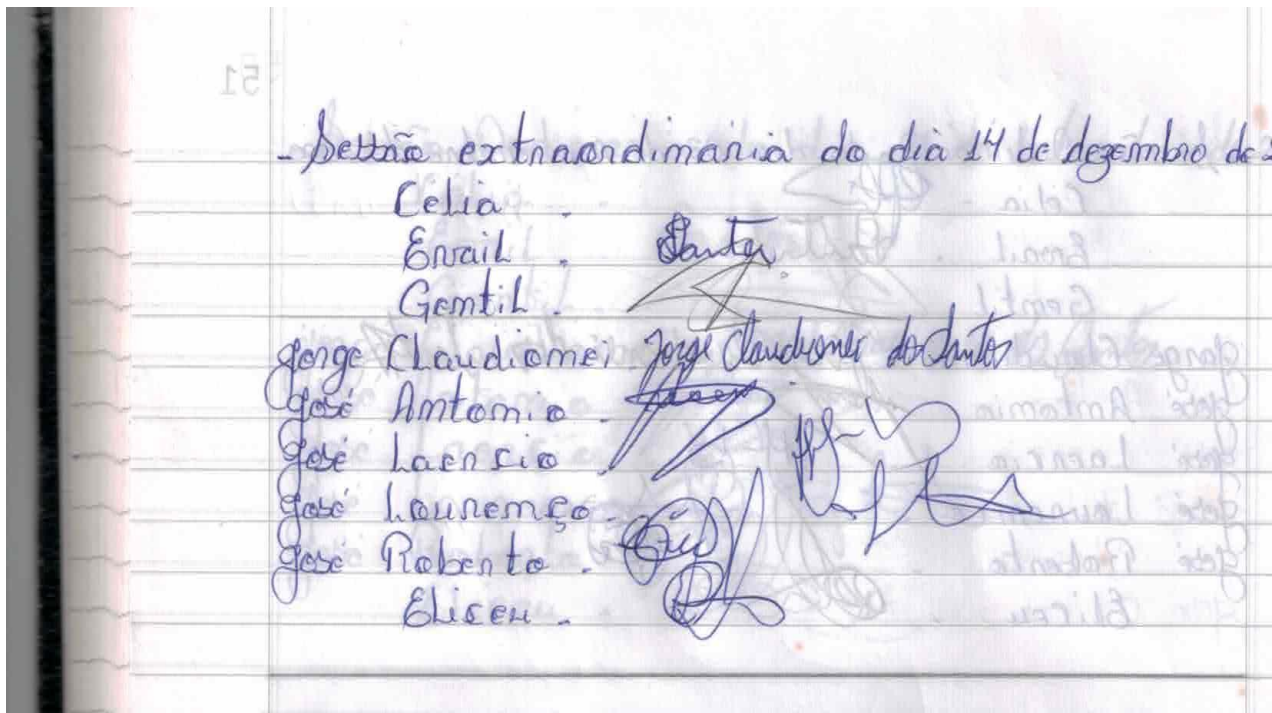 - Sessão extraordinária do dia 14 de dezembro de
Célia .
Enail . Santos
Gentil .
Jorge Claudiomei Jorge Claudiomei dos Santos
José Antonio .
José Laercio .
José Lourenço .
José Roberto .
Eliseu .
51